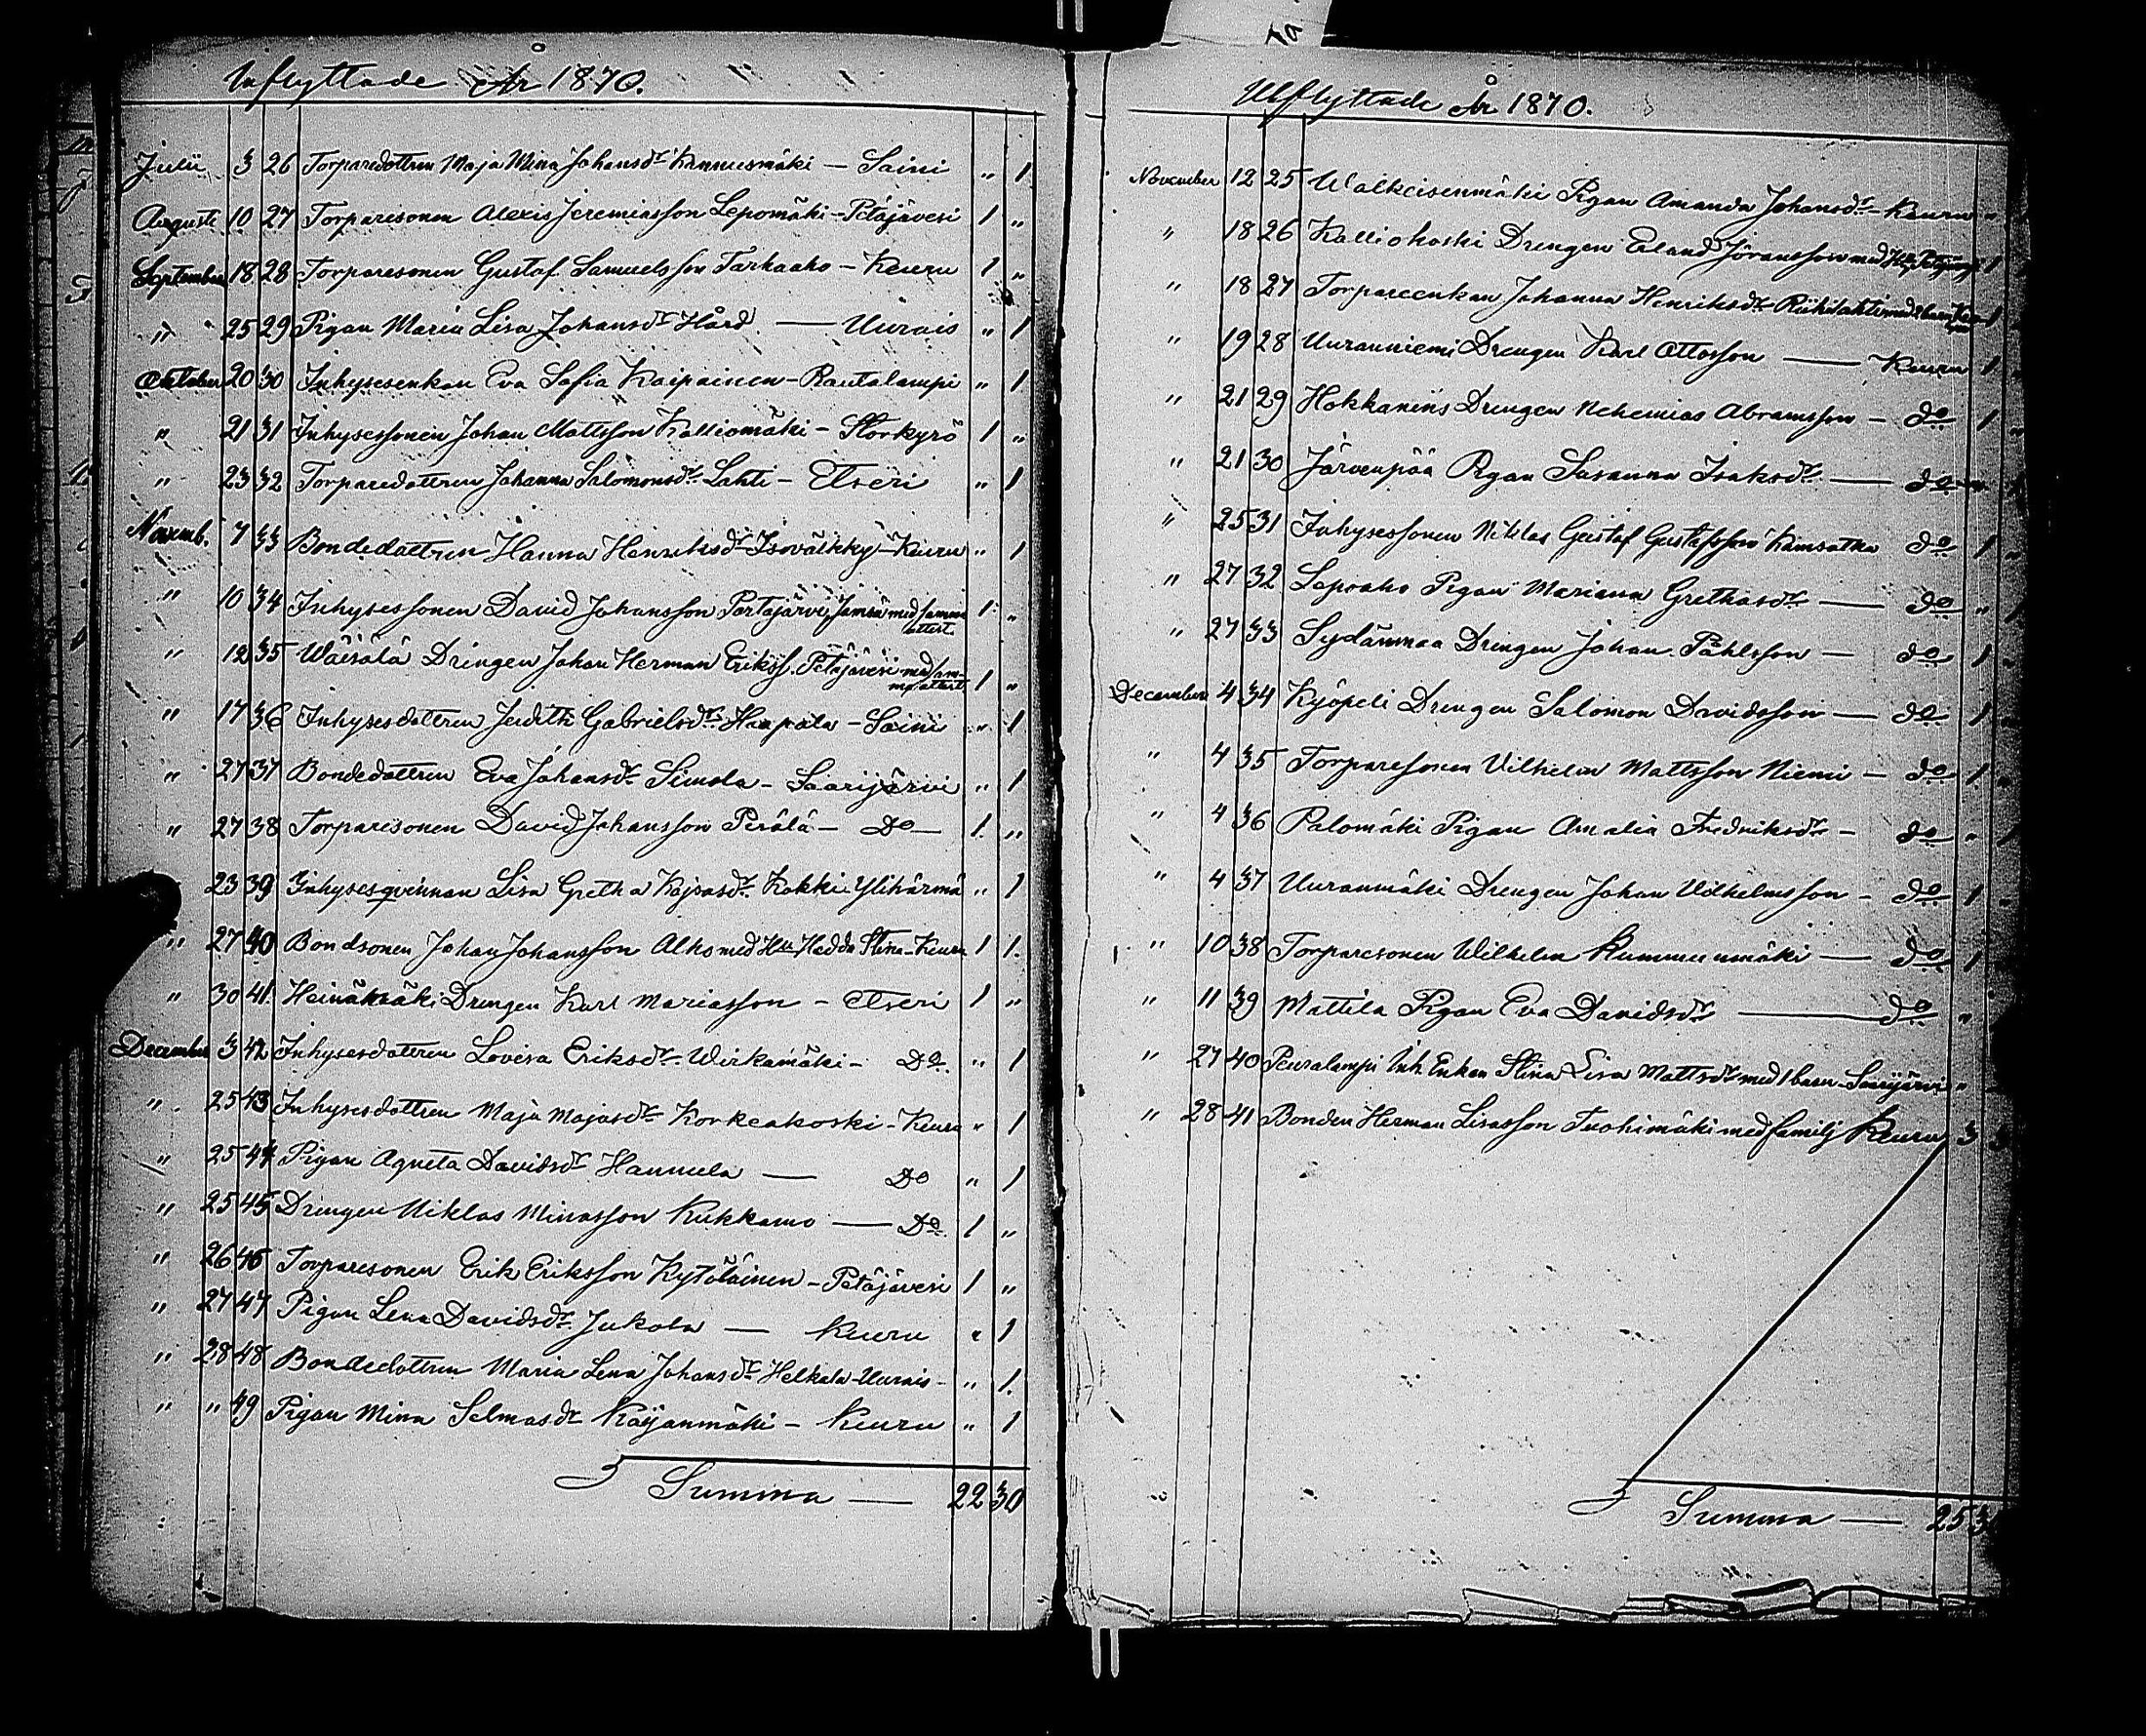 Inflyttade År 1870.
Julii 3 26 Torparedottren Maja Mina Johansdr Kannusmäki — Saini " 1
Augusti 10 27 Torparesonen Alexis Jeremiasson Lepomäki - Petäjävesi 1 "
September 18 28 Torparesonen Gustaf Samuelsson Tarhaaho - Keuru 1 "
" 25 29 Pigan Maria Lisa Johansdr Hård — Uurais " 1
Oktober 20 30 Inhysesenkan Eva Sofia Kaipainen - Rautalampi " 1
" 21 31 Inhysessonen Johan Mattsson Kalliomäki - Storkyrö 1 "
" 23 32 Torparedottren Johanna Salomonsdr Lahti - Etseri " 1
Novemb. 7 33 Bondedottren Hanna Henriksdr Isovälkky - Keuru " 1
" 10 34 Inhysessonen David Johansson Partajärvi, Jamsä med samma attest 1 "
" 12 35 Wäisälä Drengen Johan Herman Erikss. Petäjävesi med samma attest 1 "
" 17 36 Inhysesdottren Judith Gabrielsdr Haapala - Saini " 1
" 27 37 Bondedottren Eva Johansdr Simola - Saarijärvi " 1
" 27 38 Torparesonen David Johansson Perälä - Do — 1 "
23 39 Inhysesqvinnan Lisa Gretha Kajsasdr Kokki - Ylihärmä " 1
" 27 40 Bondsonen Johan Johansson Alho med Hu Hedda Stina - Keuru 1 1.
" 30 41. Heinämäki Drengen Karl Mariasson - Etseri 1 "
December 3 42 Inhysesdottren Lovisa Eriksdr Wirkamäki - Do. " 1
" 25 43 Inhysesdottren Maja Majasdr Korkeakoski - Keuru " 1
" 25 44 Pigan Agneta Davidsdr Hannula — Do " 1
" 25 45 Drengen Niklas Minasson Kukkamo — Do. 1 "
" 26 46 Torparesonen Erik Eriksson Kytöläinen - Petäjävesi 1 "
" 27 47 Pigan Lena Davidsdr Jukola — Keuru " 1
" 28 48 Bondedottren Maria Lena Johansdr Helkala - Uurais - " 1.
" " 49 Pigan Mina Selmasdr Kaijanmäki - Keuru " 1
Summa — 22 30
Utflyttade År 1870.
November 12 25 Walkeisenmäki Pigan Amanda Johansdr - Keuru "
" 18 26 Kalliokoski Drengen Erland Göransson med Hu, 1
" 18 27 Torpareenkan Johanna Henriksdr Riihilahti med 2 barn 1
" 19 28 Uuranniemi Drengen Karl Ottosson — Keuru 1
" 21 29 Hokkanens Drengen Nehemias Abramsson - do 1
" 21 30 Järvenpää Pigan Susanna Isaksdr — do "
" 25 31 Inhysessonen Niklas Gustaf Gustafsson Kamsatka do 1
" 27 32 Lepoaho Pigan Mariana Grethasdr — do "
" 27 33 Sydänmaa Drengen Johan Påhlsson — do 1
December 4 34 Kyöpeli Drengen Salomon Davidsson — do 1
" 4 35 Torparesonen Vilhelm Mattsson Niemi - do 1
" 4 36 Palomäki Pigan Amalia Fredriksdr - do "
" 4 37 Uuranmäki Drengen Johan Vilhelmsson - do 1
" 10 38 Torparesonen Wilhelm Kummunmäki — do 1
" 11 39 Mattila Pigan Eva Davidsdr — do "
" 27 40 Peuralampi Inh. Enkan Stina Lisa Mattsdr med 1 barn - Saarijärvi "
" 28 41 Bonden Herman Lisasson Tuohimäki med familj Keuru 3
Summa — 25